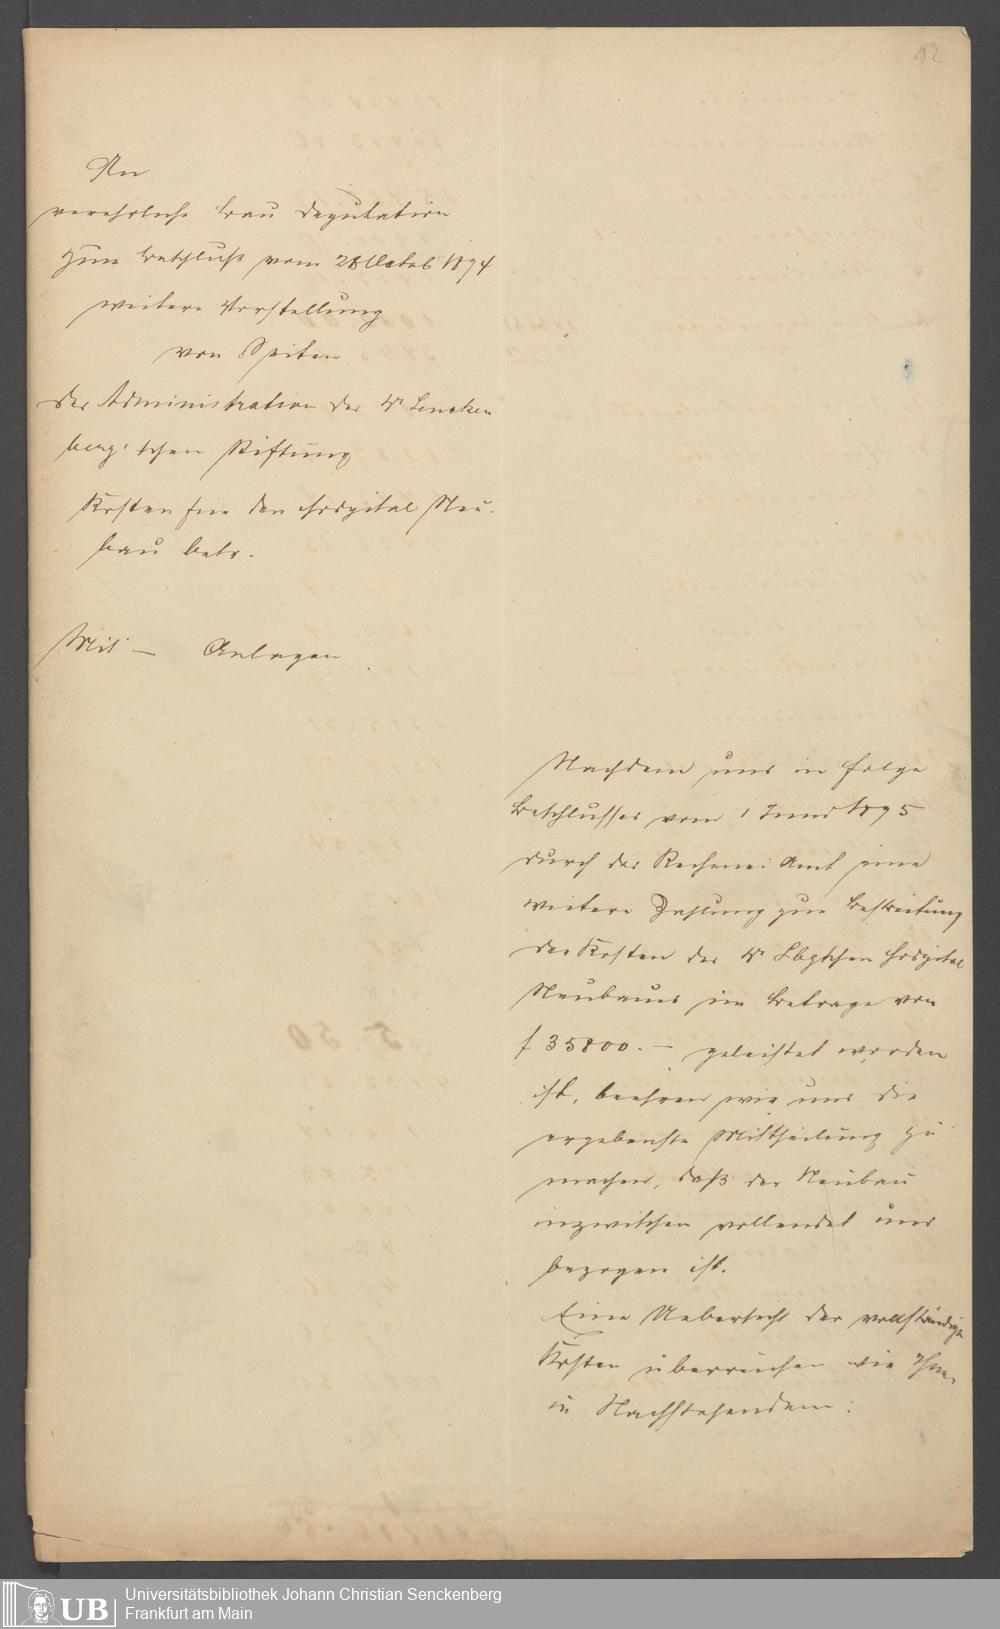 12
An
verehrliche Bau Deputation
zum Beschluß vom 28 Octob 1874
weitere Vorstellung
von Seiten
der Administration der Dr Sencken
berg'schen Stiftung
Kosten für den Hospital Neu-
bau betr.
Mit — Anlagen
Nachdem uns in Folge
Beschlusses vom 1 Juni 1875
durch das Rechenei Amt eine
weitere Zahlung zur Bestreitung
der Kosten des Dr Sbgschen Hospital
Neubaues im Betrage von
f 35800. — geleistet worden
ist, beehren wir uns die
ergebenste Mittheilung zu
machen, daß der Neubau
inzwischen vollendet und
bezogen ist.
Eine Uebersicht der vollständigen
Kosten überreichen wir Ihnen
in Nachstehendem:
UB
Universitätsbibliothek Johann Christian Senckenberg
Frankfurt am Main